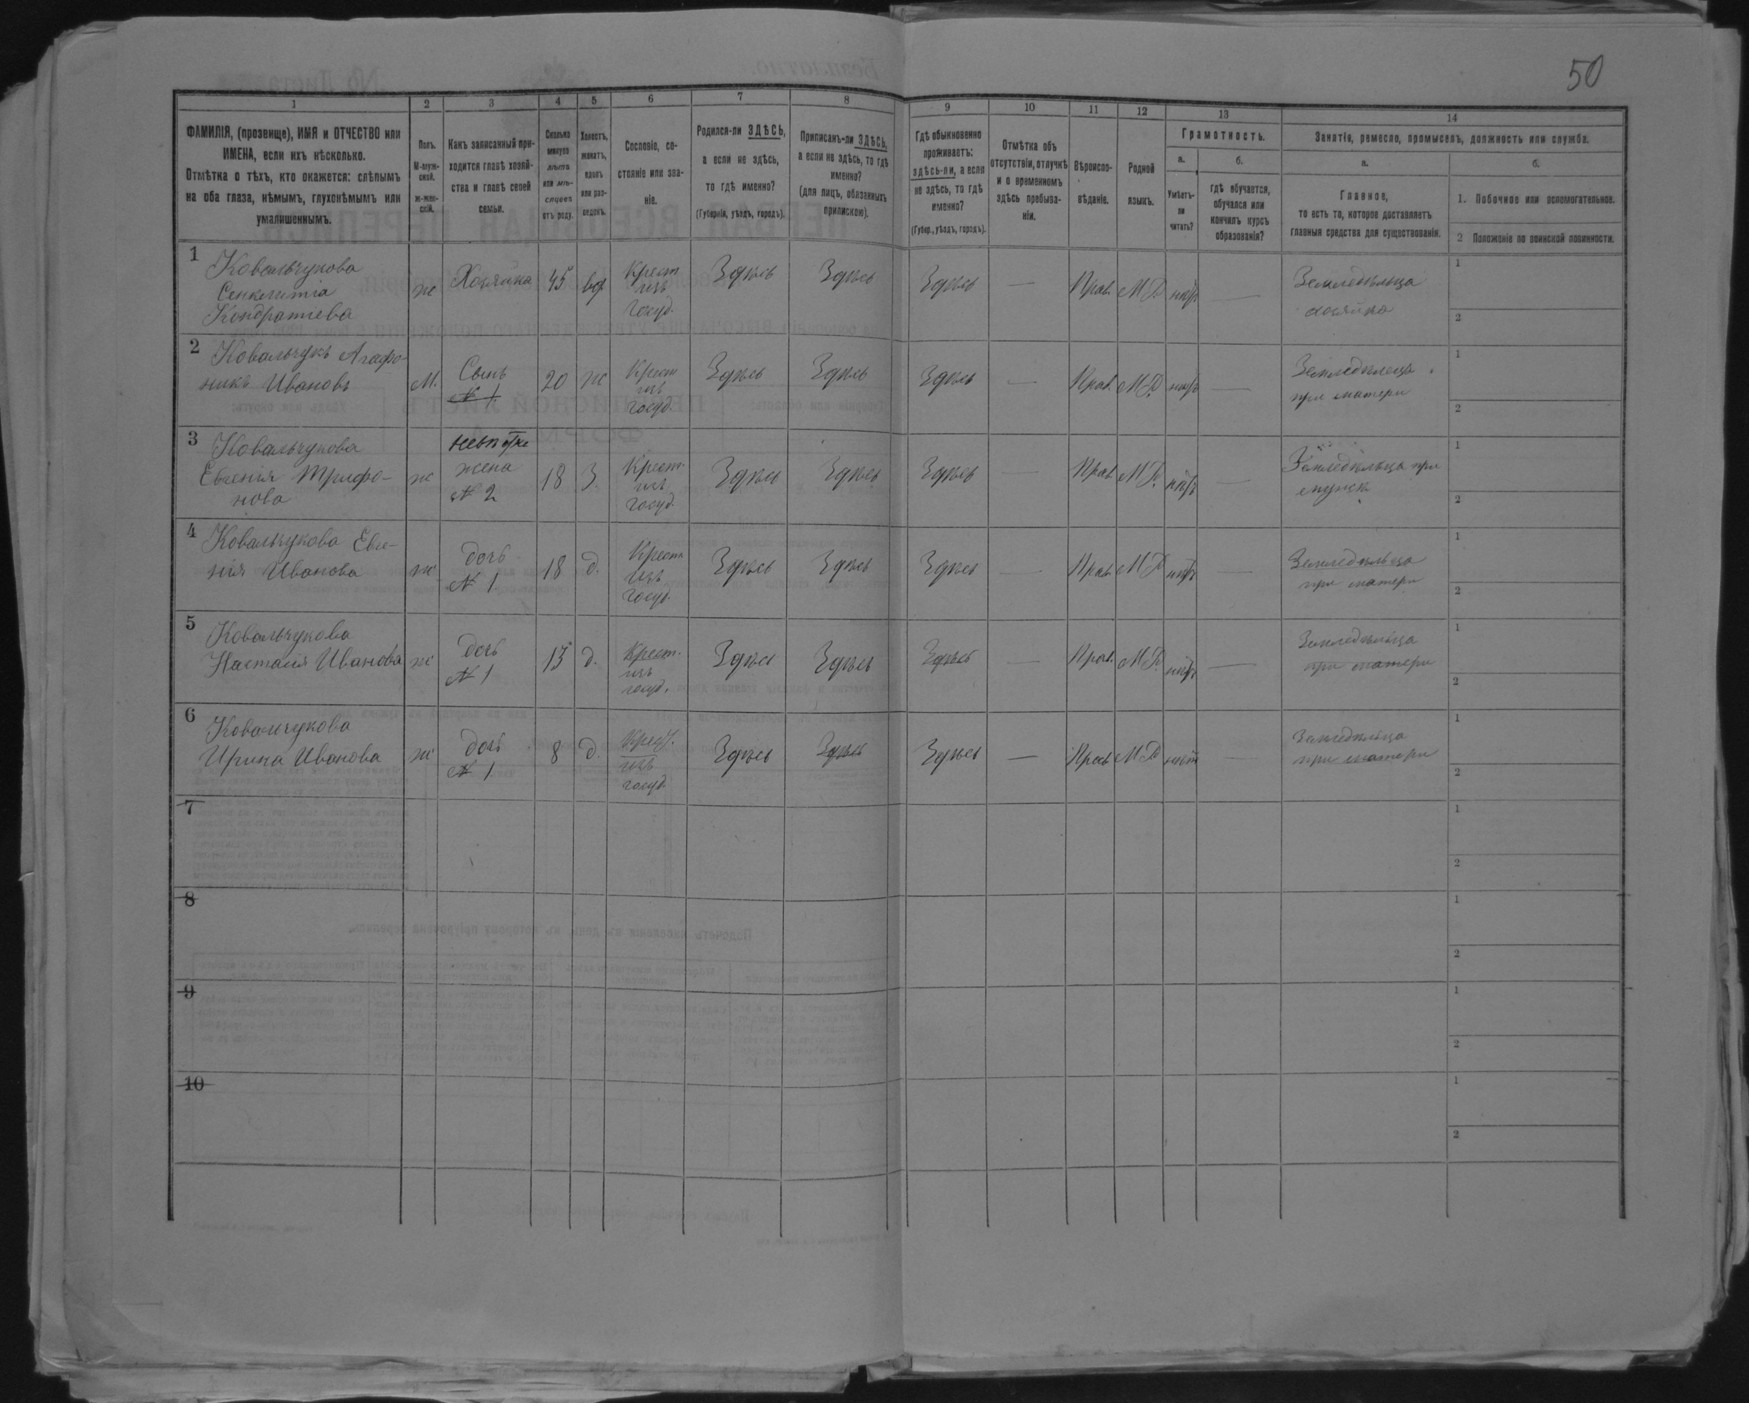 50
1 2 3 4 5 6 7 8 9 10 11 12 13 14
ФАМИЛІЯ, (прозвище), ИМЯ и ОТЧЕСТВО или
ИМЕНА, если ихъ нѣсколько.
Отмѣтка о тѣхъ, кто окажется: слѣпымъ
на оба глаза, нѣмымъ, глухонѣмымъ или
умалишеннымъ.
Полъ.
М-мужской.
ж-женскій.
Какъ записанный приходится
главѣ хозяйства
и главѣ своей
семьи.
Сколько
минуло
лѣтъ
или мѣсяцевъ
отъ роду.
Холостъ,
женатъ,
вдовъ
или разведенъ.
Сословіе, состояніе
или званіе.
Родился-ли ЗДѢСЬ,
а если не здѣсь,
то гдѣ именно?
(Губернія, уѣздъ, городъ).
Приписанъ-ли ЗДѢСЬ,
а если не здѣсь, то гдѣ
именно?
(для лицъ, обязанныхъ
припискою).
Гдѣ обыкновенно
проживаетъ:
здѣсь-ли, а если
не здѣсь, то гдѣ
именно?
(Губер., уѣздъ, городъ).
Отмѣтка объ
отсутствіи, отлучкѣ
и о временномъ
здѣсь пребываніи.
Вѣроисповѣданіе.
Родной
языкъ.
Грамотность.
а.
Умѣетъ-ли
читать?
б.
гдѣ обучается,
обучался или
кончилъ курсъ
образованія?
Занятіе, ремесло, промыселъ, должность или служба.
а.
Главное,
то есть то, которое доставляетъ
главныя средства для существованія.
б.
1. Побочное или вспомогательное.
2 Положеніе по воинской повинности.
1 Ковальчукова
Кондратіева
ж Хозяйка 45 вд Крест. изъ госуд. Здѣсь Здѣсь Здѣсь — Прав. М.Р. нѣтъ — Земледѣлица хозяйка 1 2
2 Ковальчукъ Агафоникъ
Ивановъ
М. Сынъ № 1. 20 ж Крест изъ госуд. Здѣсь Здѣсь Здѣсь — Прав. М.Р. нѣтъ — Земледѣлецъ при матери 1 2
3 Ковальчукова
Евгенія Трифонова
ж невѣстка жена № 2 18 З Крест. изъ госуд. Здѣсь Здѣсь Здѣсь — Прав. М.Р. нѣтъ — Земледѣлица при 1 2
4 Ковальчукова Евгенія
Иванова
ж дочь № 1 18 д. Крест. изъ госуд. Здѣсь Здѣсь Здѣсь — Прав. М.Р. нѣтъ — Земледѣлица при матери 1 2
5 Ковальчукова
Настасія Иванова
ж дочь № 1 15 д. Крест. изъ госуд. Здѣсь Здѣсь Здѣсь — Прав. М.Р. нѣтъ — Земледѣлица при матери 1 2
6 Ковальчукова
Ирина Иванова
ж дочь № 1 8 д. Крест. изъ госуд. Здѣсь Здѣсь Здѣсь — Прав. М.Р. нѣтъ — Земледѣлица при матери 1 2
7 1 2
8 1 2
9 1 2
10 1 2